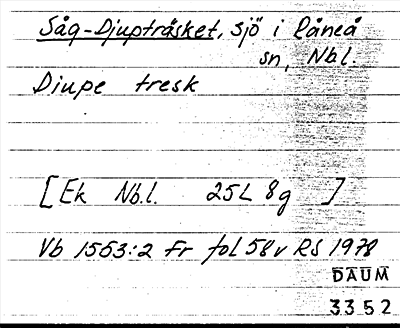 Såg-Djupträsket, sjö i Råneå
sn, Nb.l.
Djupe tresk
[Ek Nb.l. 25L 8g ]
Vb 1563:2 Fr fol 58v RS 1978
DAUM
3352